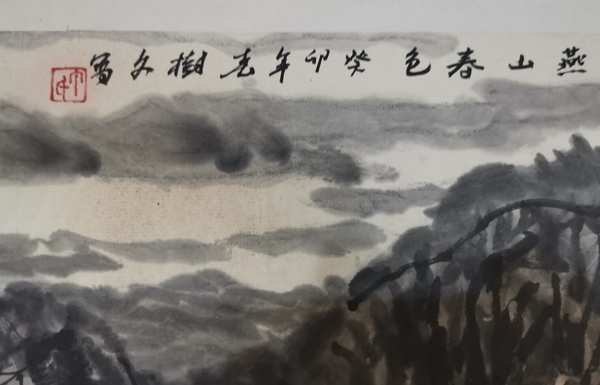 燕山春色 癸卯年 樹文寫